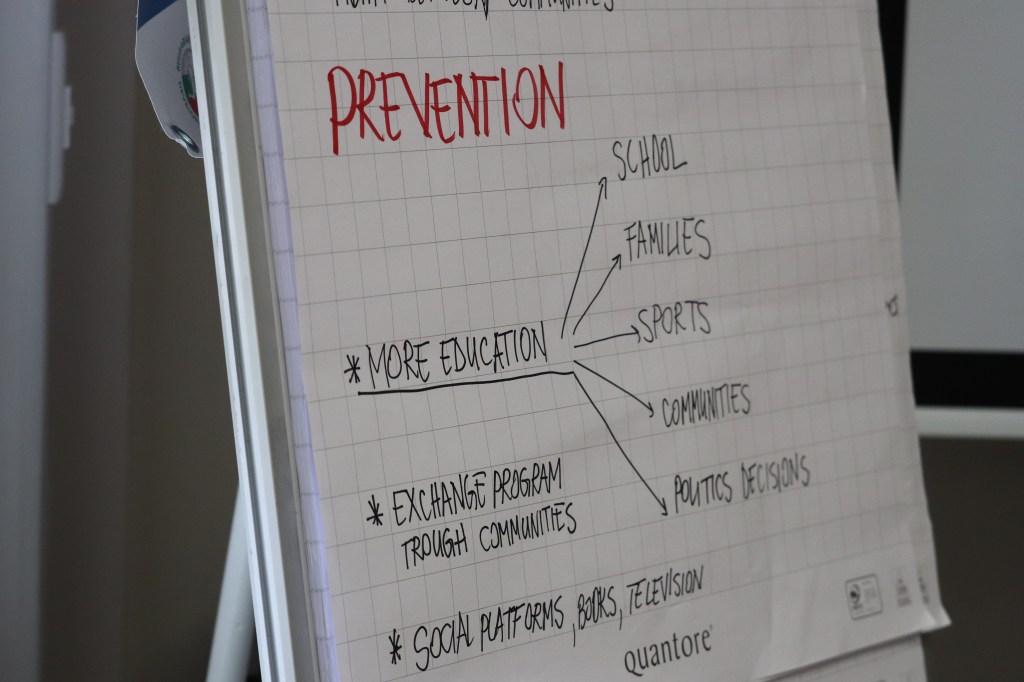 COMMUNITIES
PREVENTION
SCHOOL
FAMILIES
SPORTS
* MORE EDUCATION
COMMUNITIES
POLITICS DECISIONS
* EXCHANGE PROGRAM
TROUGH COMMUNITIES
* SOCIAL PLATFORMS, BOOKS, TELEVISION
quantore